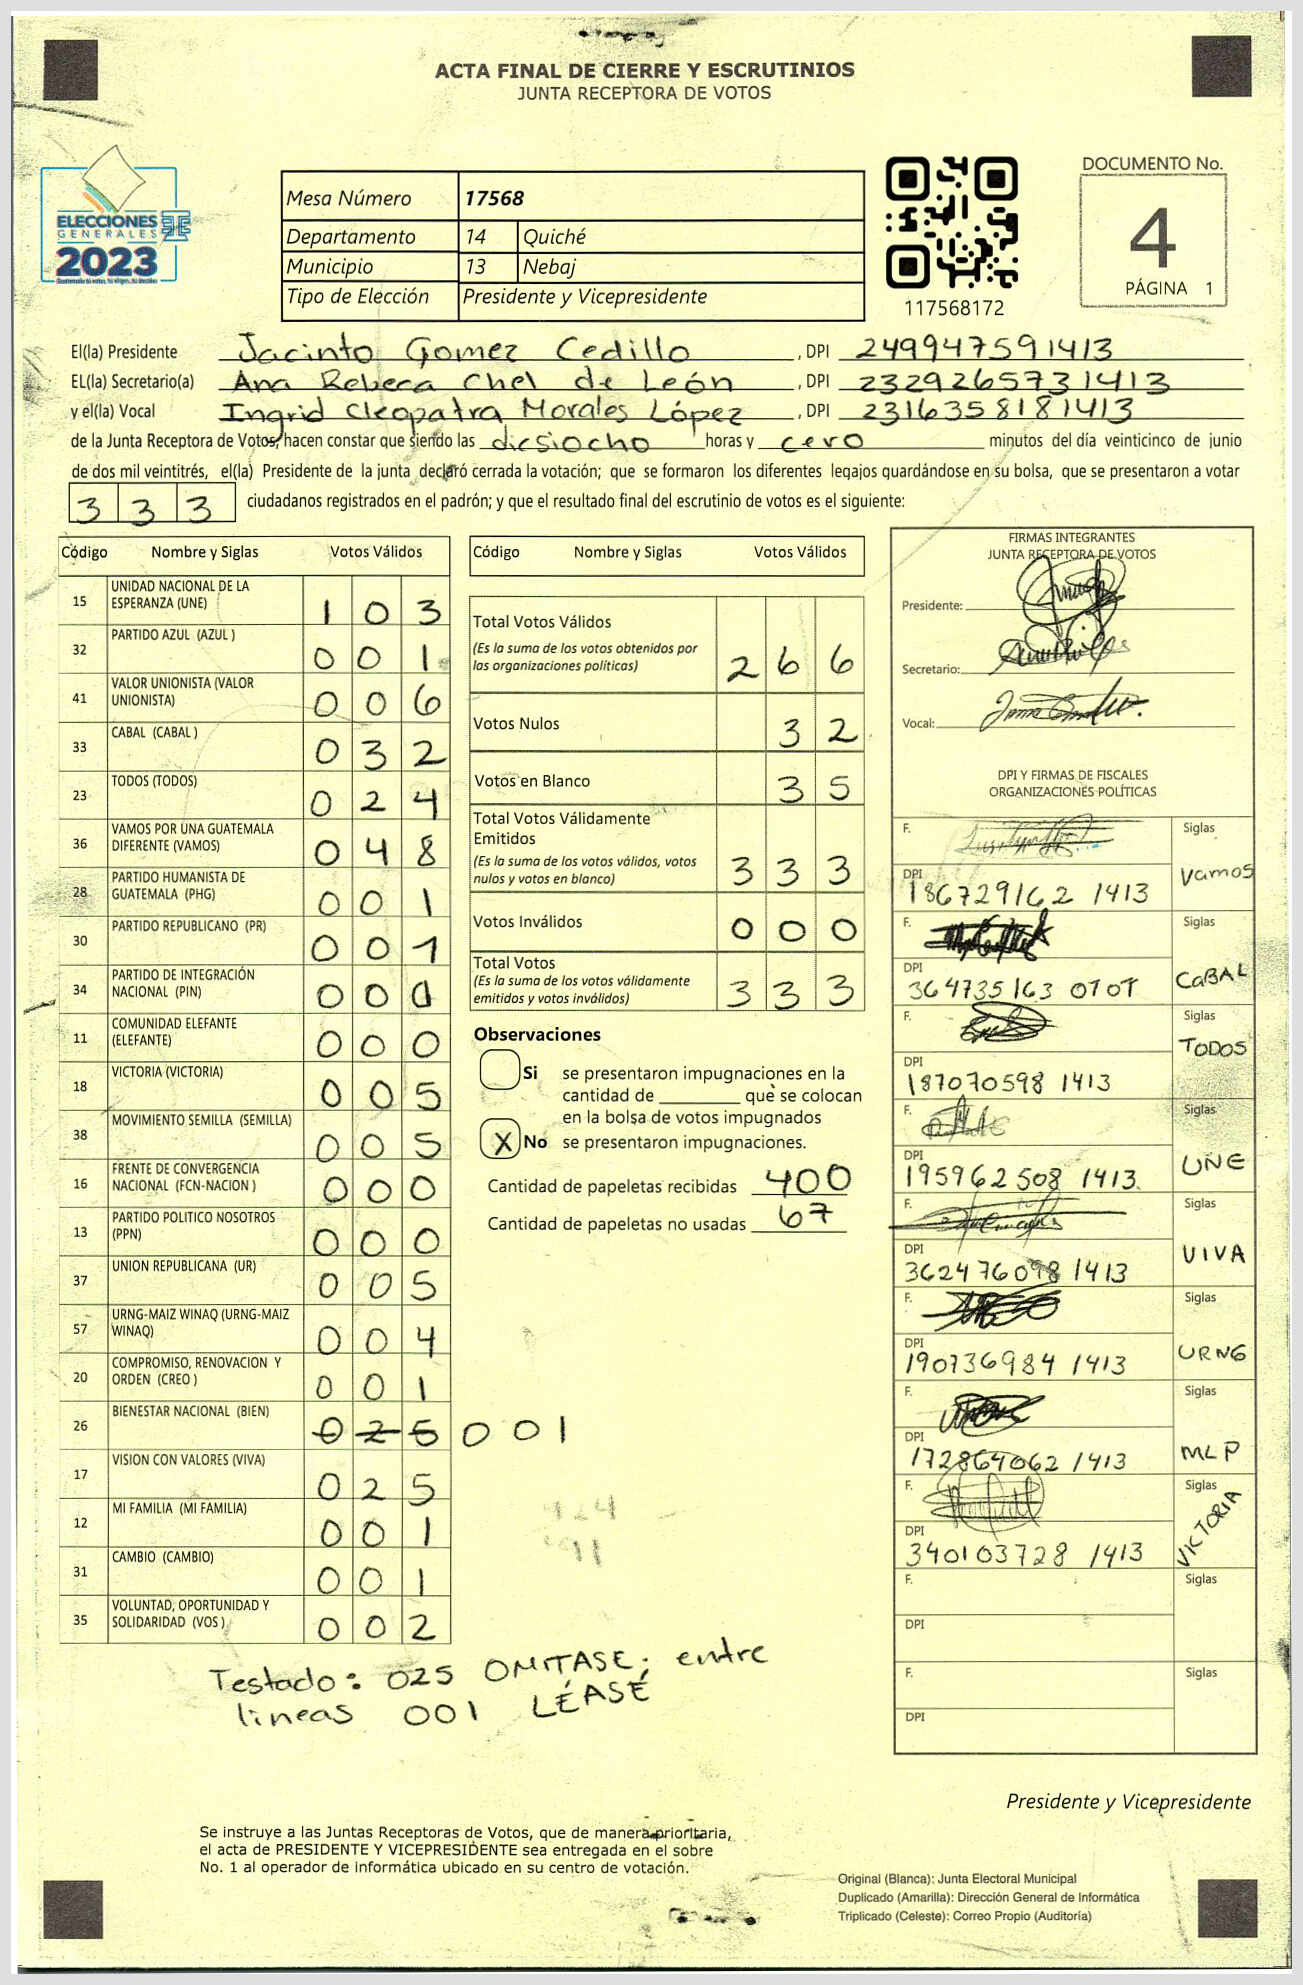 ACTA FINAL DE CIERRE Y ESCRUTINIOS
JUNTA RECEPTORA DE VOTOS
ELECCIONES
GENERALES
2023
Mesa Número 17568
Departamento 14 Quiché
Municipio 13 Nebaj
Tipo de Elección Presidente y Vicepresidente
117568172
DOCUMENTO No.
4
PÁGINA 1
El(la) Presidente Jacinto Gomez Cedillo , DPI 249947591413
EL(la) Secretario(a) Ana Rebeca Chel de León , DPI 2329265731413
y el(la) Vocal Ingrid Cleopatra Morales López , DPI 2316358181413
de la Junta Receptora de Votos, hacen constar que siendo las diesiocho horas y cero minutos del día veinticinco de junio
de dos mil veintitrés, el(la) Presidente de la junta declaró cerrada la votación; que se formaron los diferentes legajos guardándose en su bolsa, que se presentaron a votar
333 ciudadanos registrados en el padrón; y que el resultado final del escrutinio de votos es el siguiente:
Código Nombre y Siglas Votos Válidos
15 UNIDAD NACIONAL DE LA
ESPERANZA (UNE) 103
32 PARTIDO AZUL (AZUL ) 001
41 VALOR UNIONISTA (VALOR
UNIONISTA) 006
33 CABAL (CABAL ) 032
23 TODOS (TODOS) 024
36 VAMOS POR UNA GUATEMALA
DIFERENTE (VAMOS) 048
28 PARTIDO HUMANISTA DE
GUATEMALA (PHG) 001
30 PARTIDO REPUBLICANO (PR) 001
34 PARTIDO DE INTEGRACIÓN
NACIONAL (PIN) 000
11 COMUNIDAD ELEFANTE
(ELEFANTE) 000
18 VICTORIA (VICTORIA) 005
38 MOVIMIENTO SEMILLA (SEMILLA) 005
16 FRENTE DE CONVERGENCIA
NACIONAL (FCN-NACION ) 000
13 PARTIDO POLITICO NOSOTROS
(PPN) 000
37 UNION REPUBLICANA (UR) 005
57 URNG-MAIZ WINAQ (URNG-MAIZ
WINAQ) 004
20 COMPROMISO, RENOVACION Y
ORDEN (CREO ) 001
26 BIENESTAR NACIONAL (BIEN) 025 001
17 VISION CON VALORES (VIVA) 025
12 MI FAMILIA (MI FAMILIA) 001
31 CAMBIO (CAMBIO) 001
35 VOLUNTAD, OPORTUNIDAD Y
SOLIDARIDAD (VOS ) 002
Testado: 025 OMITASE; entre
lineas 001 LÉASE
Código Nombre y Siglas Votos Válidos
Total Votos Válidos
(Es la suma de los votos obtenidos por
las organizaciones políticas) 266
Votos Nulos 32
Votos en Blanco 35
Total Votos Válidamente
Emitidos
(Es la suma de los votos válidos, votos
nulos y votos en blanco) 333
Votos Inválidos 000
Total Votos
(Es la suma de los votos válidamente
emitidos y votos inválidos) 333
Observaciones
Si se presentaron impugnaciones en la
cantidad de ________ que se colocan
en la bolsa de votos impugnados
X No se presentaron impugnaciones.
Cantidad de papeletas recibidas 400
Cantidad de papeletas no usadas 67
FIRMAS INTEGRANTES
JUNTA RECEPTORA DE VOTOS
Presidente:
Secretario:
Vocal:
DPI Y FIRMAS DE FISCALES
ORGANIZACIONES POLÍTICAS
F. Siglas
Vamos
DPI 186729162 1413
F. Siglas
CABAL
DPI 364735163 0707
F. Siglas
TODOS
DPI 187070598 1413
F. Siglas
UNE
DPI 195962508 1413
F. Siglas
VIVA
DPI 362476098 1413
F. Siglas
URNG
DPI 190736984 1413
F. Siglas
MLP
DPI 172864062 1413
F. Siglas
VICTORIA
DPI 340103728 1413
F. Siglas
DPI
F. Siglas
DPI
Presidente y Vicepresidente
Se instruye a las Juntas Receptoras de Votos, que de manera prioritaria,
el acta de PRESIDENTE Y VICEPRESIDENTE sea entregada en el sobre
No. 1 al operador de informática ubicado en su centro de votación.
Original (Blanca): Junta Electoral Municipal
Duplicado (Amarilla): Dirección General de Informática
Triplicado (Celeste): Correo Propio (Auditoría)